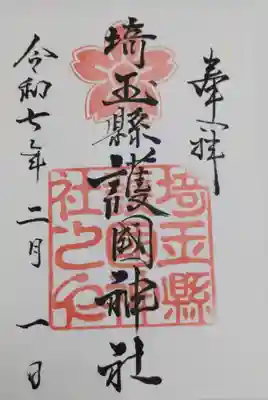 奉拝
埼玉縣護國神社
令和七年二月一日
埼玉縣
社之印